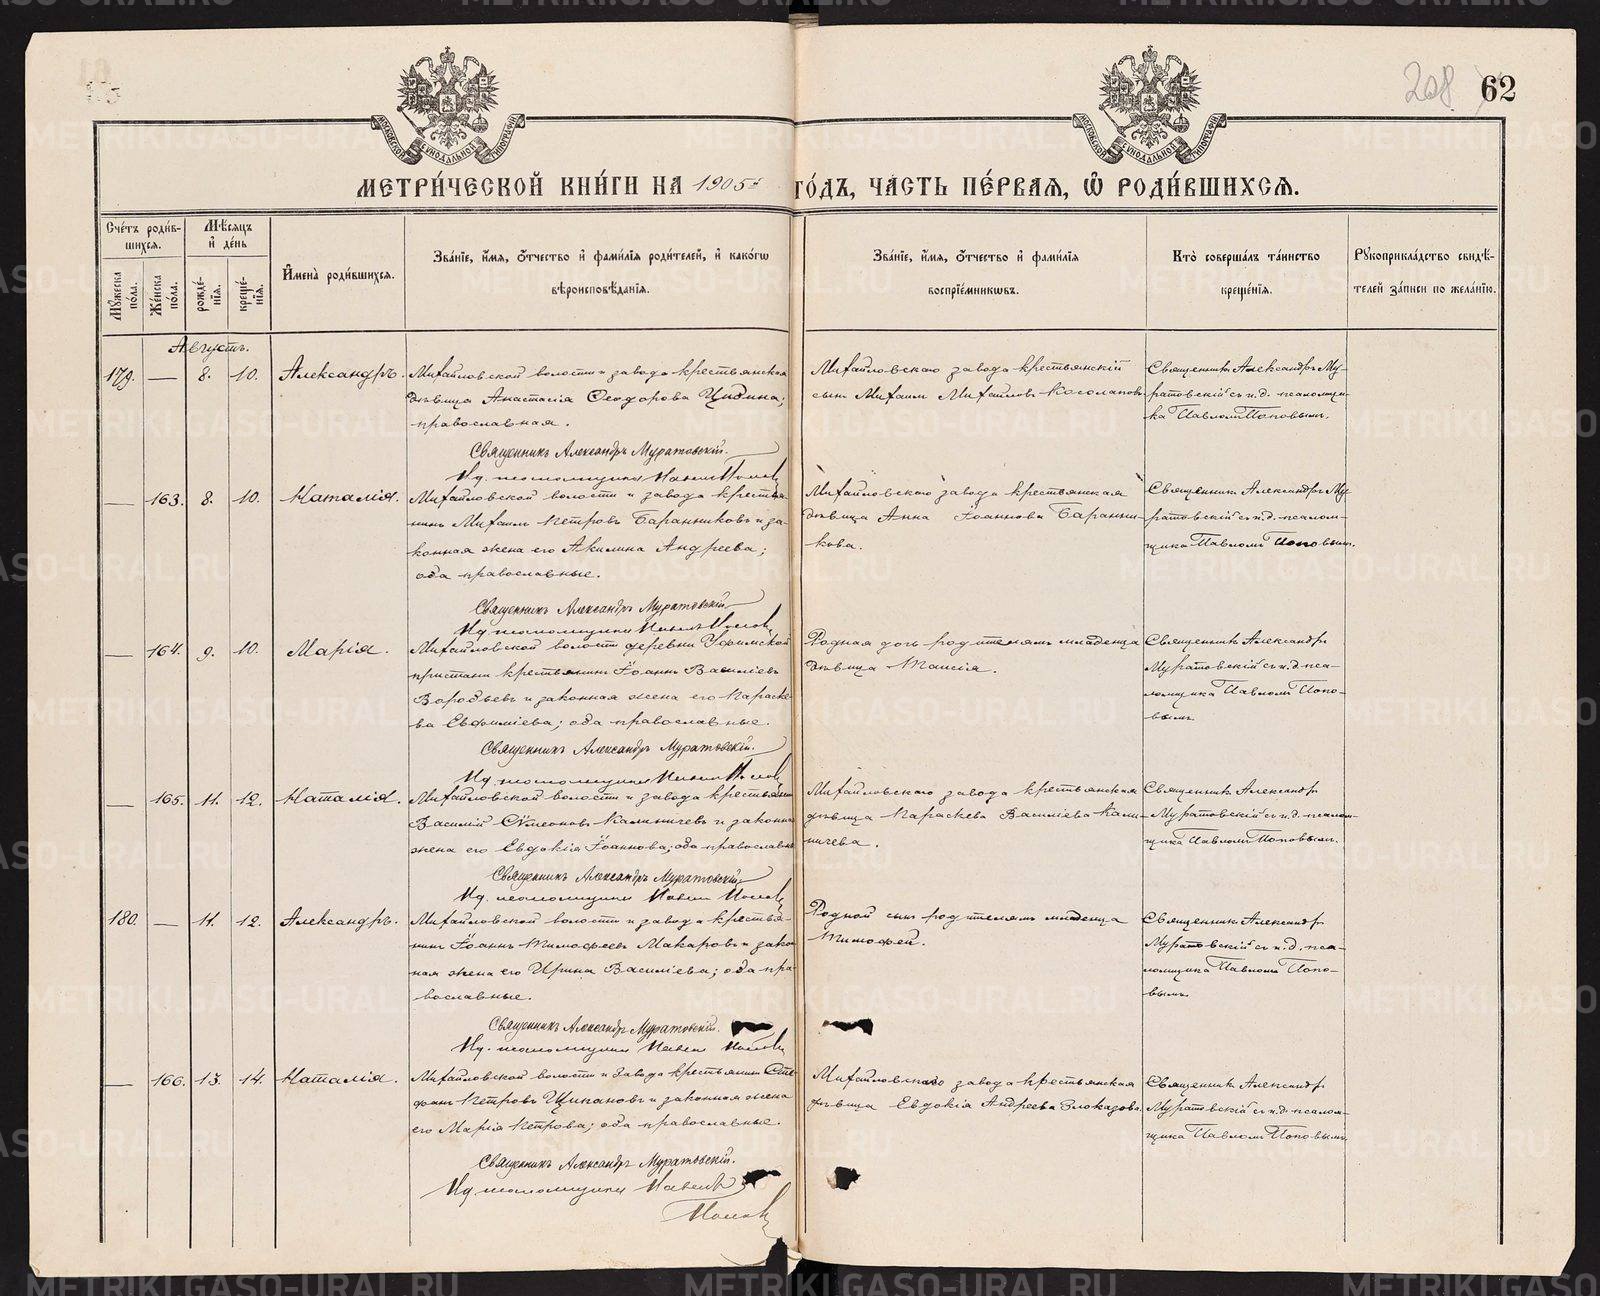 208 62
МОСКОВСКОЙ СѴНОДАЛЬНОЙ ТИПОГРАФІИ
МОСКОВСКОЙ СѴНОДАЛЬНОЙ ТИПОГРАФІИ
МЕТРИ́ЧЕСКОЙ КНИ́ГИ НА 1905й ГО́ДЪ, ЧА́СТЬ ПЕ́РВАЯ, Ѿ РОДИ́ВШИХСЯ.
Сче́тъ роди́в-
шихся.
Мꙋ́жеска по́ла.
Же́нска по́ла.
Мѣ́сяцъ
и де́нь
рожде́-
нія.
креще́-
нія.
Имена̀ роди́вшихся.
Зва́ніе, и́мя, о́тчество и фами́лія роди́телей, и како́гѡ
вѣроисповѣ́данія.
Зва́ніе, и́мя, о́тчество и фами́лія
воспріе́мникѡвъ.
Кто̀ соверша́лъ та́инство
креще́нія.
Рꙋкоприкла́дство свидѣ́-
телей за́писи по жела́нію.
Августъ.
179. — 8. 10. Александръ.
Михайловской волости и завода крестьянская
дѣвица Анастасія Ѳеодорова Цидина;
православная.
Священникъ Александръ Муратовскій.
И.д. псаломщика Павелъ Поповъ
Михайловскаго завода крестьянскій
сынъ Михаилъ Михайловъ Косолаповъ.
Священникъ Александръ Му-
ратовскій съ и.д. псаломщи-
ка Павломъ Поповымъ.
— 163. 8. 10. Наталія.
Михайловской волости и завода крестья-
нинъ Михаилъ Петровъ Баранниковъ и за-
конная жена его Акилина Андреева;
оба православные.
Священникъ Александръ Муратовскій.
И.д. псаломщика Павелъ Поповъ
Михайловскаго завода крестьянская
дѣвица Анна Іоаннова Баранни-
кова.
Священникъ Александръ Му-
ратовскій съ и.д. псалом-
щика Павломъ Поповымъ.
— 164. 9. 10. Марія.
Михайловской волости деревни Уфимской
пристани крестьянинъ Іоаннъ Василіевъ
Воробьевъ и законная жена его Параске-
ва Евфиміева; оба православные.
Священникъ Александръ Муратовскій.
И.д. псаломщика Павелъ Поповъ
Родная дочь родителямъ младенца
дѣвица Таисія.
Священникъ Александръ
Муратовскій съ и.д. пса-
ломщика Павломъ Попо-
вымъ.
— 165. 11. 12. Наталія.
Михайловской волости и завода крестьянинъ
Василій Сѵмеоновъ Калиничевъ и законная
жена его Евдокія Іоаннова; оба православные
Священникъ Александръ Муратовскій.
И.д. псаломщика Павелъ Поповъ
Михайловскаго завода крестьянская
дѣвица Параскева Василіева Кали-
ничева.
Священникъ Александръ
Муратовскій съ и.д. псалом-
щика Павломъ Поповымъ.
180. — 11. 12. Александръ.
Михайловской волости и завода крестья-
нинъ Іоаннъ Тимофеевъ Макаровъ и закон-
ная жена его Ирина Василіева; оба пра-
вославные.
Священникъ Александръ Муратовскій.
И.д. псаломщика Павелъ Поповъ
Родной сынъ родителямъ младенца
Тимофей.
Священникъ Александръ
Муратовскій съ и.д. пса-
ломщика Павломъ Попо-
вымъ.
— 166. 13. 14. Наталія.
Михайловской волости и завода крестьянинъ Сте-
фанъ Петровъ Щипановъ и законная жена
его Марія Петрова; оба православные.
Священникъ Александръ Муратовскій.
И.д. псаломщика Павелъ
Поповъ
Михайловскаго завода крестьянская
дѣвица Евдокія Андреева Злоказова.
Священникъ Александръ
Муратовскій съ и.д. псалом-
щика Павломъ Поповымъ.
METRIKI.GASO-URAL.RU